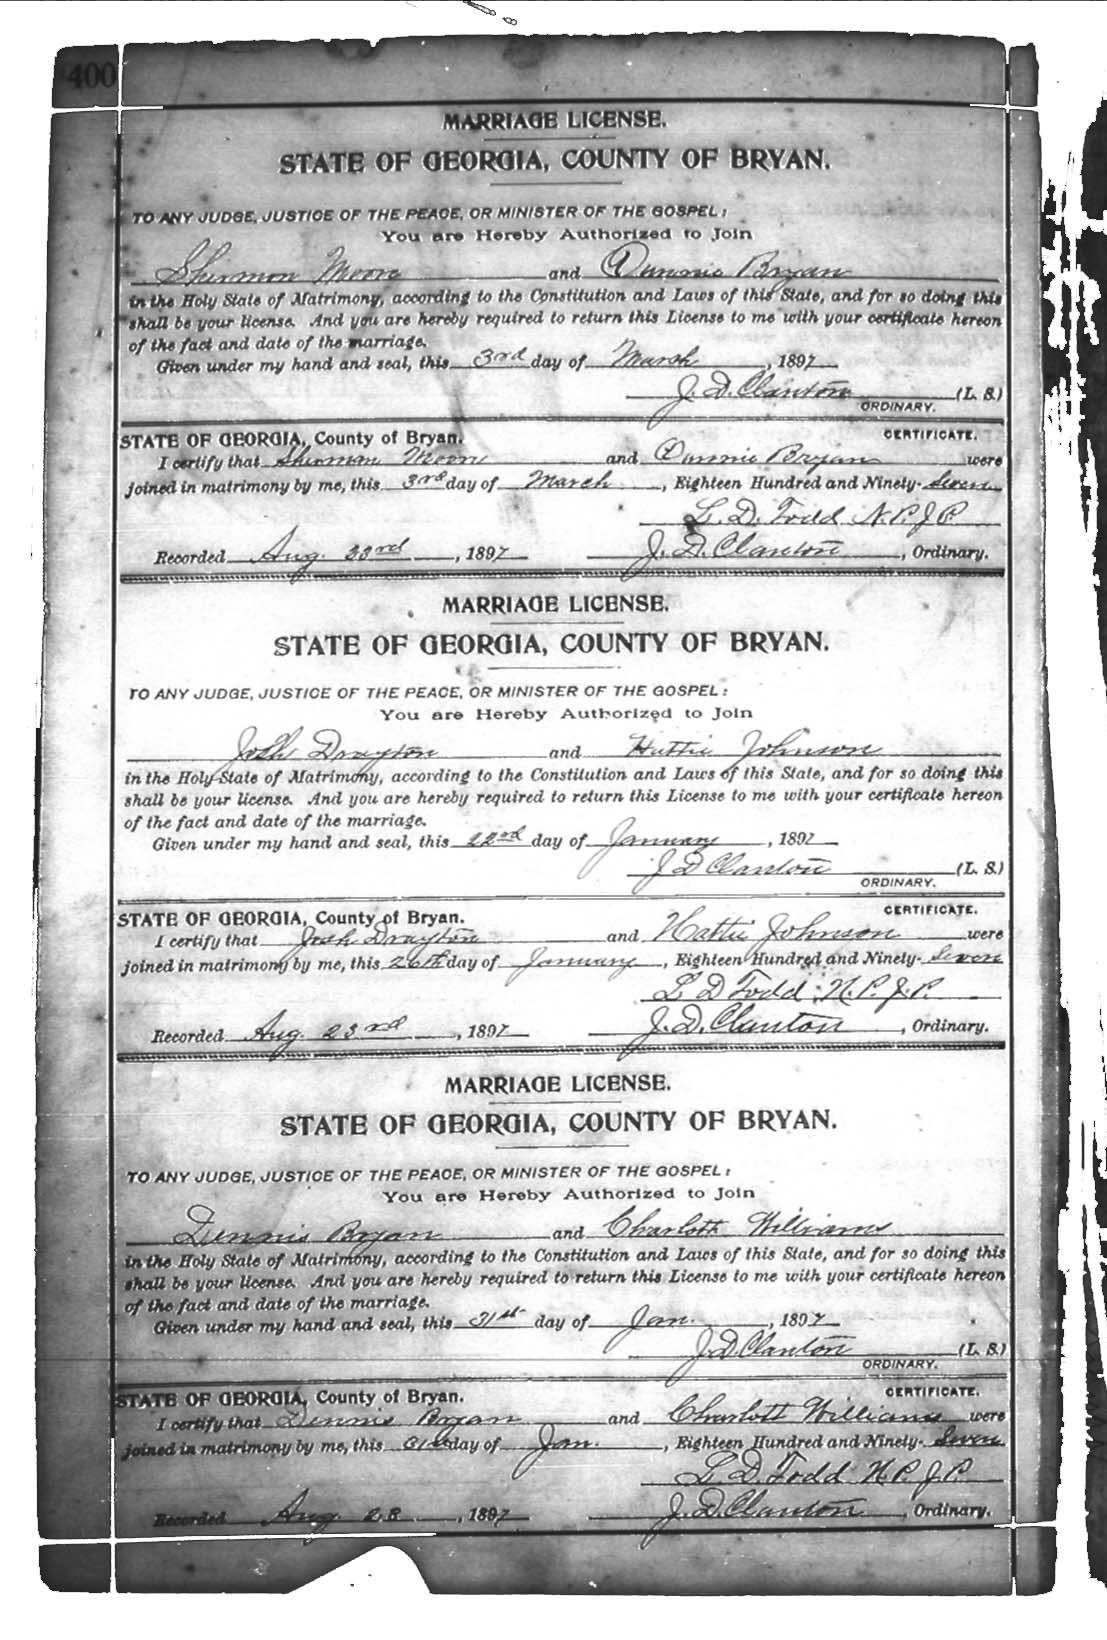 400
MARRIAGE LICENSE.
STATE OF GEORGIA, COUNTY OF BRYAN.
TO ANY JUDGE, JUSTICE OF THE PEACE, OR MINISTER OF THE GOSPEL:
You are Hereby Authorized to Join
Shermon Moore and Dunnie Bryan
in the Holy State of Matrimony, according to the Constitution and Laws of this State, and for so doing this
shall be your license. And you are hereby required to return this License to me with your certificate hereon
of the fact and date of the marriage.
Given under my hand and seal, this 3rd day of March, 1897
J. D. Clanton (L. S.)
ORDINARY.
STATE OF GEORGIA, County of Bryan. CERTIFICATE.
I certify that Sherman Moore and Dunnie Bryan were
joined in matrimony by me, this 3rd day of March, Eighteen Hundred and Ninety-Seven
L. D. Todd N.P.J.P.
Recorded Aug. 23rd, 1897 J. D. Clanton, Ordinary.
MARRIAGE LICENSE.
STATE OF GEORGIA, COUNTY OF BRYAN.
TO ANY JUDGE, JUSTICE OF THE PEACE, OR MINISTER OF THE GOSPEL:
You are Hereby Authorized to Join
Josh Drayton and Hattie Johnson
in the Holy State of Matrimony, according to the Constitution and Laws of this State, and for so doing this
shall be your license. And you are hereby required to return this License to me with your certificate hereon
of the fact and date of the marriage.
Given under my hand and seal, this 22nd day of January, 1897
J D Clanton (L. S.)
ORDINARY.
STATE OF GEORGIA, County of Bryan. CERTIFICATE.
I certify that Josh Drayton and Hattie Johnson were
joined in matrimony by me, this 26th day of January, Eighteen Hundred and Ninety-Seven
L D Todd N.P.J.P.
Recorded Aug. 23rd, 1897 J. D. Clanton, Ordinary.
MARRIAGE LICENSE.
STATE OF GEORGIA, COUNTY OF BRYAN.
TO ANY JUDGE, JUSTICE OF THE PEACE, OR MINISTER OF THE GOSPEL:
You are Hereby Authorized to Join
Dennis Bryan and Charlott Williams
in the Holy State of Matrimony, according to the Constitution and Laws of this State, and for so doing this
shall be your license. And you are hereby required to return this License to me with your certificate hereon
of the fact and date of the marriage.
Given under my hand and seal, this 31st day of Jan., 1897
J. D. Clanton (L. S.)
ORDINARY.
STATE OF GEORGIA, County of Bryan. CERTIFICATE.
I certify that Dennis Bryan and Charlott Williams were
joined in matrimony by me, this 31st day of Jan., Eighteen Hundred and Ninety-Seven
L. D. Todd N.P.J.P.
Recorded Aug 23, 1897 J. D. Clanton, Ordinary.